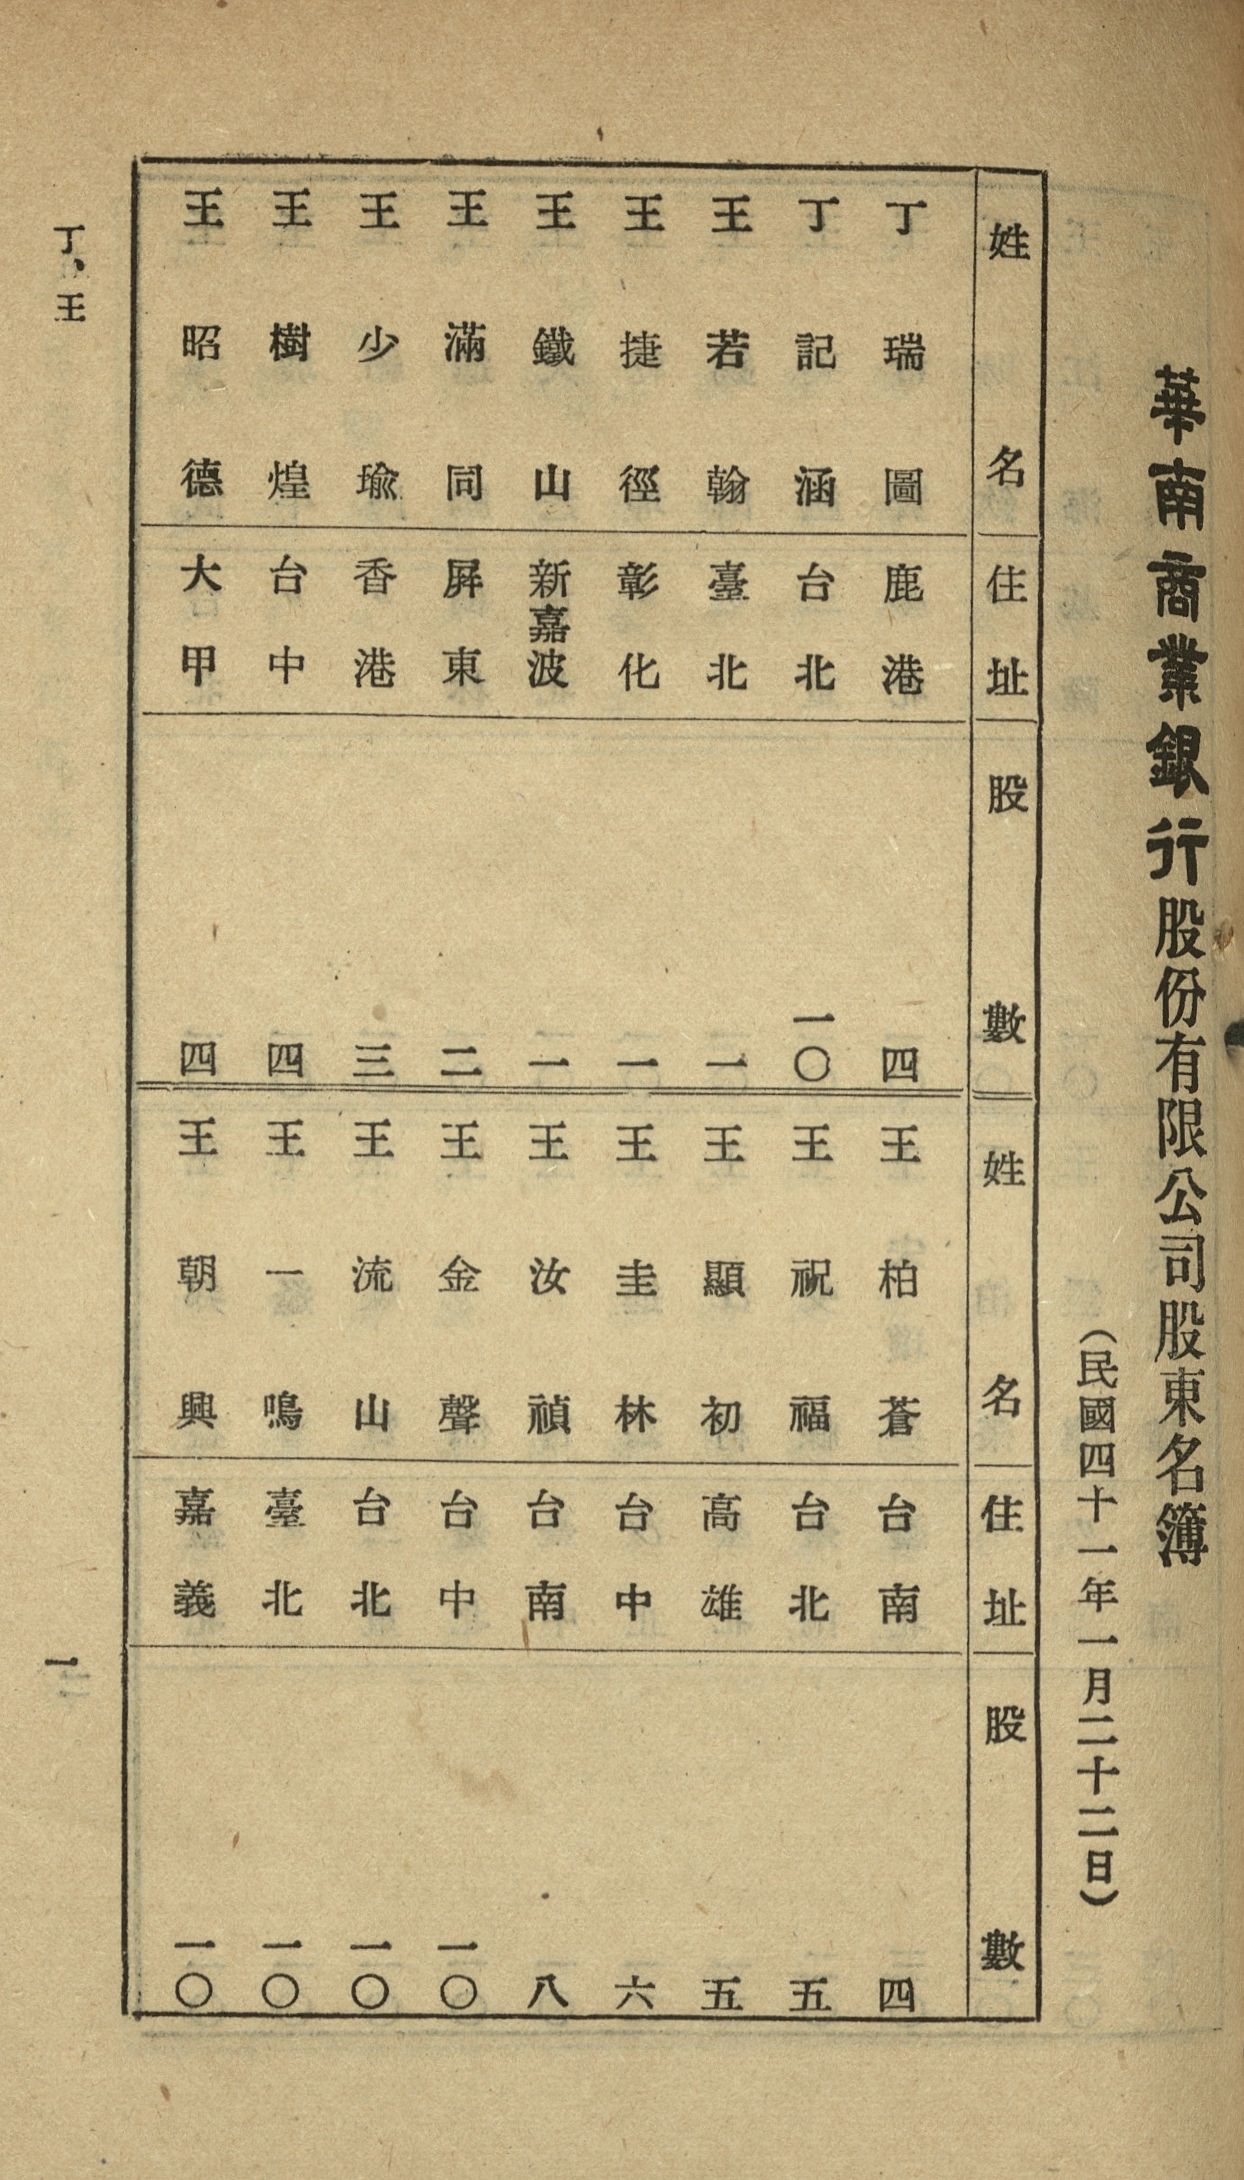 華南商業銀行股份有限公司股東名簿
（民國四十一年一月二十二日）
姓名 住址 股數 姓名 住址 股數
丁瑞圖 鹿港 四 王柏蒼 台南 四
丁記涵 台北 一〇 王祝福 台北 五
王若翰 臺北 一 王顯初 高雄 五
王捷徑 彰化 一 王圭林 台中 六
王鐵山 新嘉波 一 王汝禎 台南 八
王滿同 屏東 二 王金聲 台中 一〇
王少瑜 香港 三 王流山 台北 一〇
王樹煌 台中 四 王一鳴 臺北 一〇
王昭德 大甲 四 王朝興 嘉義 一〇
丁、王
一